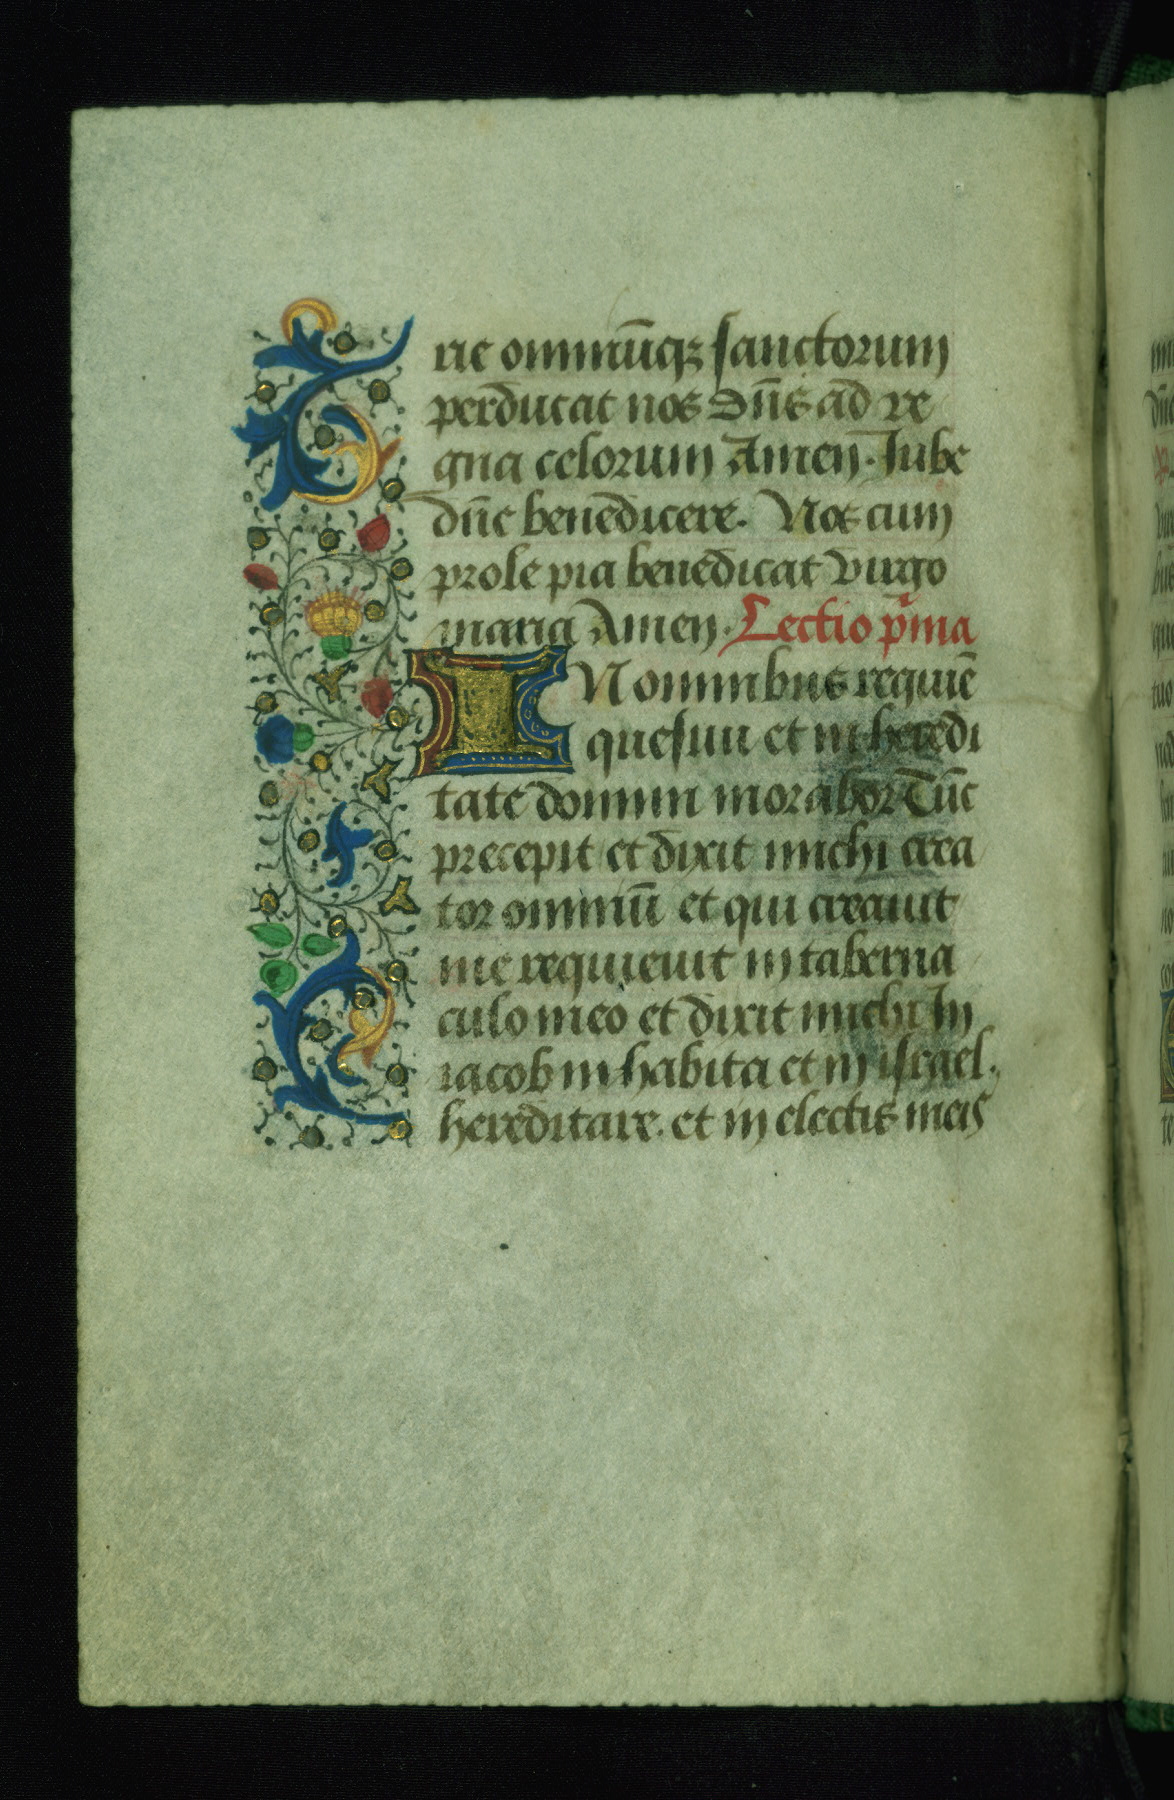 rie omniūqꝫ sanctorum
perducat nos dn̄s ad re
gna celorum Amen. Iube
dn̄e benedicere. Nos cum
prole pia benedicat virgo
maria Amen. Lectio p̄ma
IN omnibus requiē
quesiui et in heredi
tate domini morabor Tūc
precepit et dixit michi crea
tor omniū et qui creauit
me requieuit in taberna
culo meo et dixit michi In
iacob in habita et in israel.
hereditare. et in electis meis